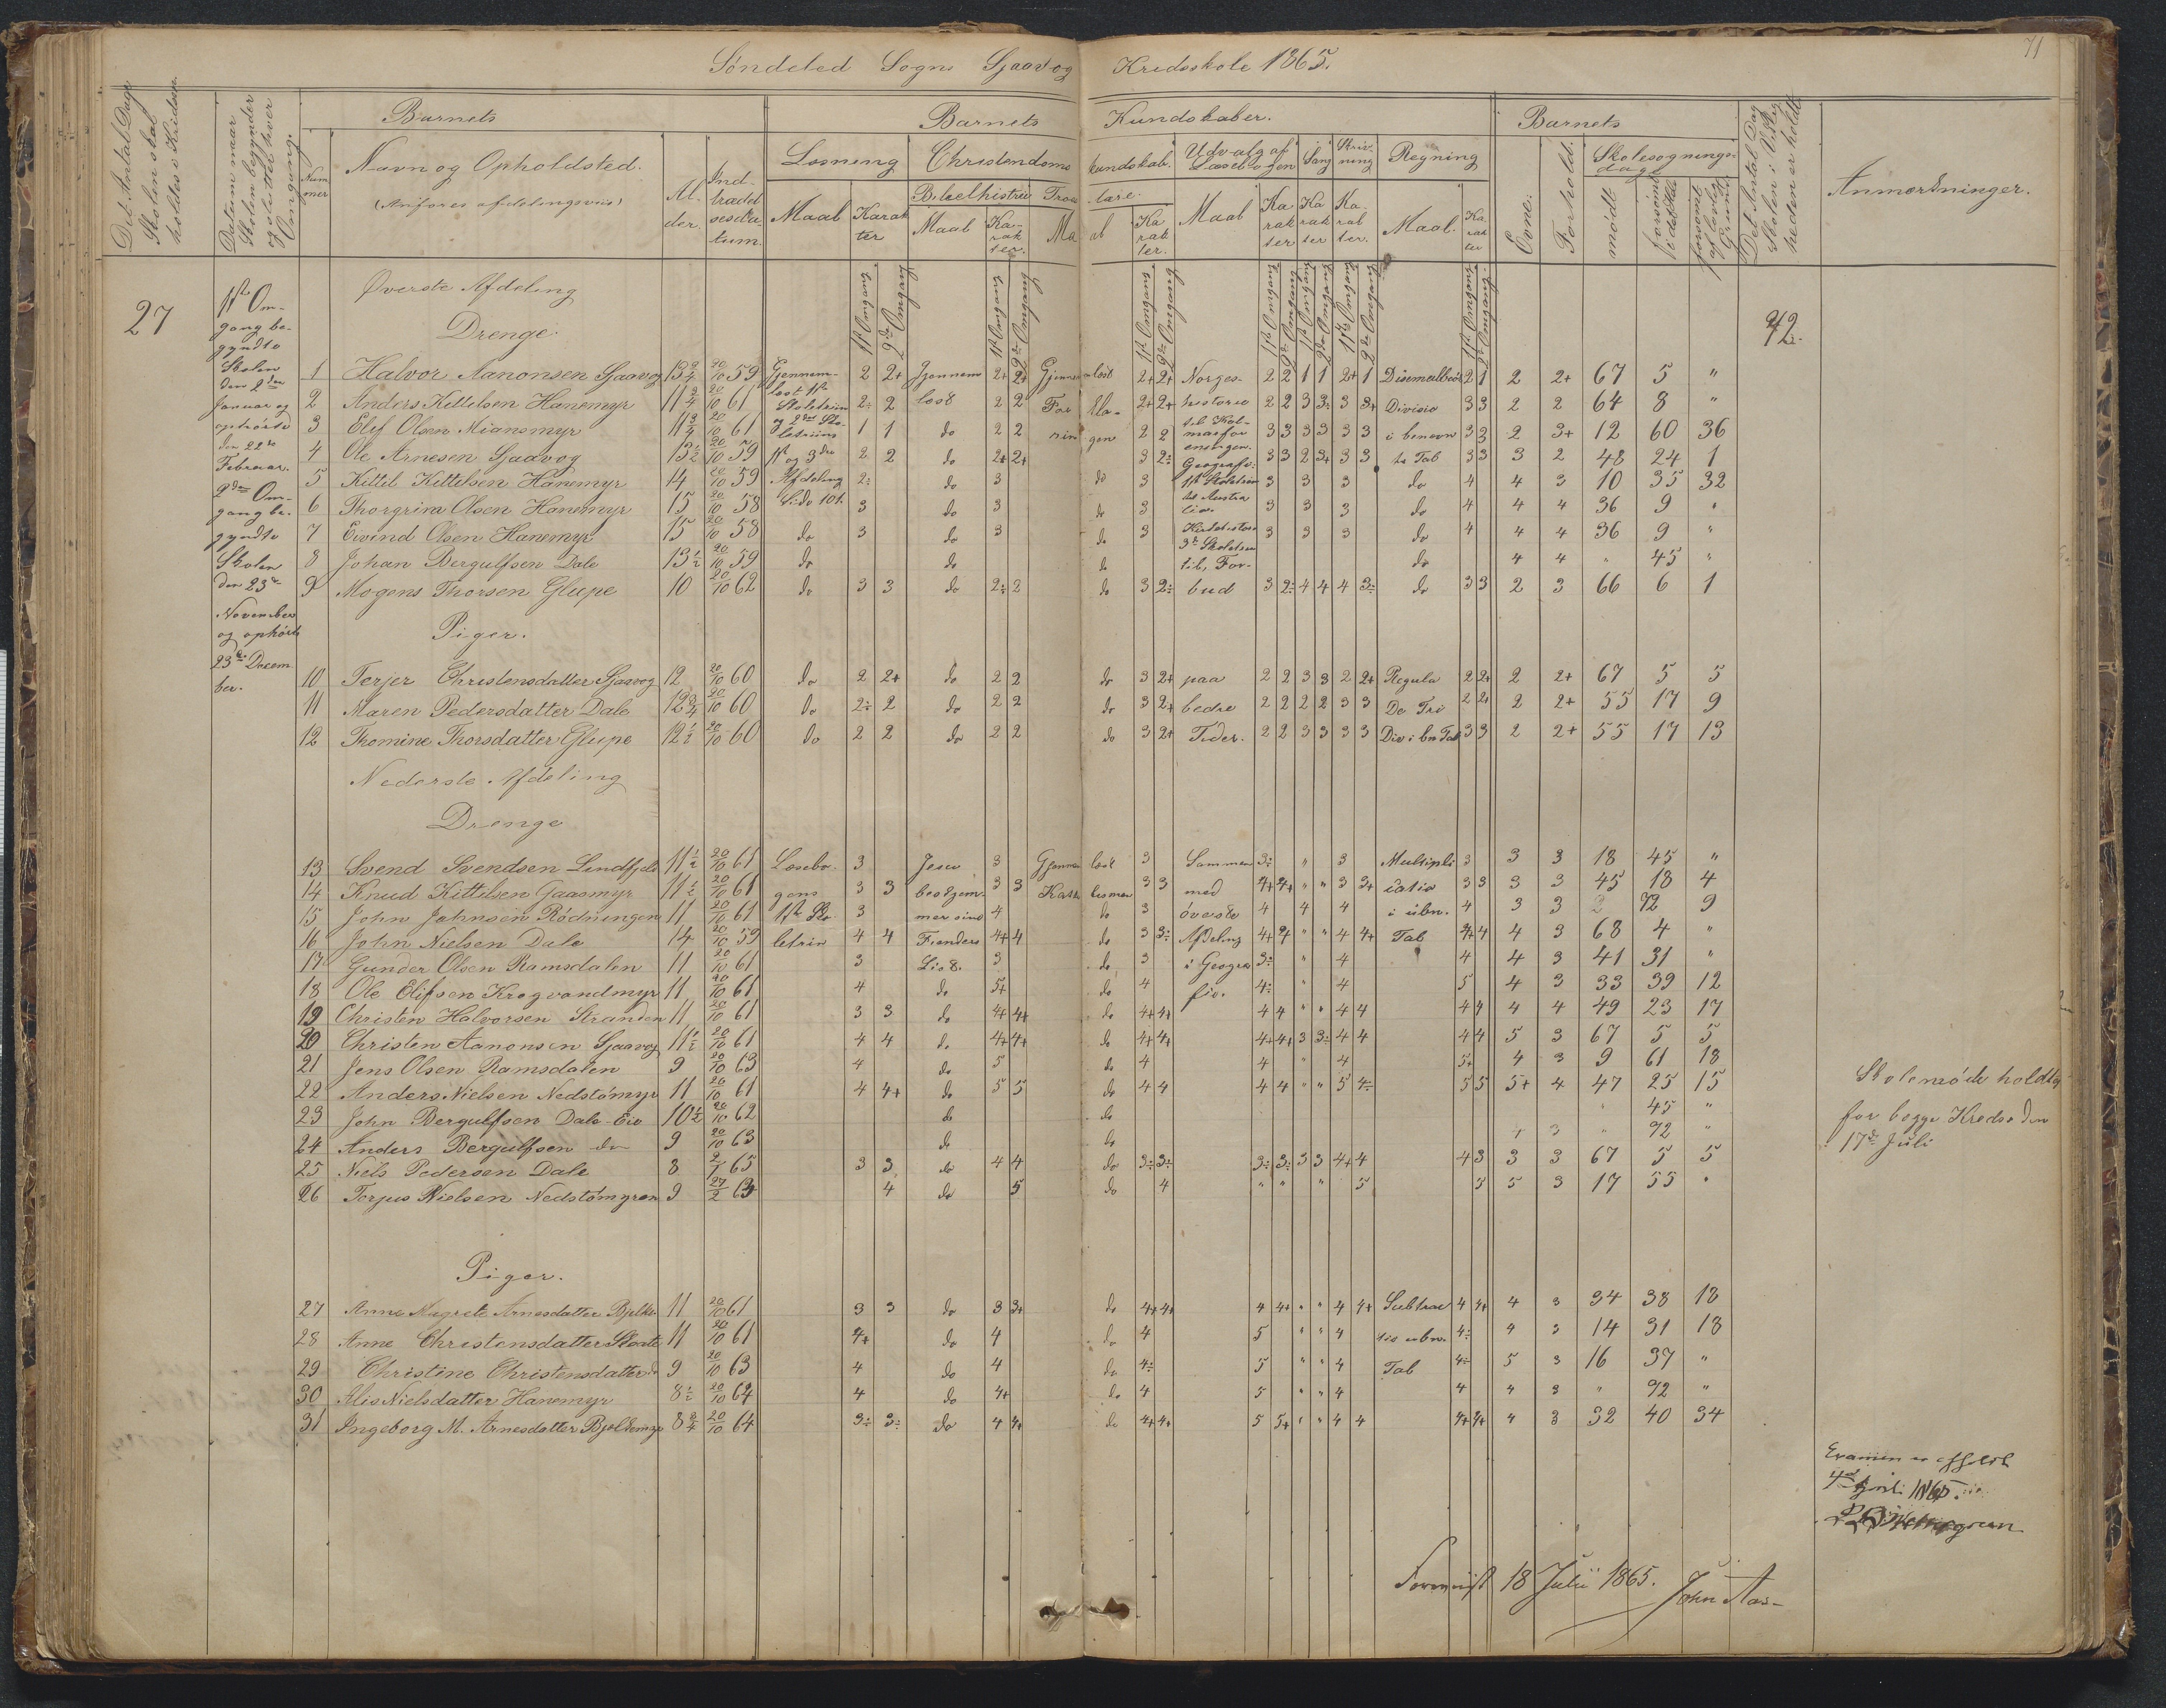 71
Søndeled Sogns Sjaavog Kredsskole 1865.
Det Antal Dage Skolen skal holdes i Kredsen.
Datum naar Skolen begynder og slutter hver Omgang.
Barnets
Barnets Kundskaber.
Barnets
Nummer
Navn og Opholdsted.
(Anføres afdelingsviis)
Alder.
Indtrædelsesdatum.
Læsning
Christendomskundskab.
Udvalg af Læsebogen
Sang
Skrivning
Regning
Maal
Karakter
Bibelhistorie
Troeslære.
Maal
Karakter.
Maal
Karakter.
Maal
Karakter
Karakter
Karakter.
Maal.
Karakter
Evne.
Forhold.
Skolesøgningsdage
mødt
forsømt i det Hele
forsømt af lovlig Grund
Det Antal Dage Skolen i Virkeligheden er holdt
Anmærkninger.
1ste Omgang 2den Omgang
27
42.
1ste Omgang begyndte Skolen den 2den Januar og ophørte den 22de Februar.
2den Omgang begyndte Skolen den 23de November og ophørte 23de December.
Øverste Afdeling
Drenge.
1 Halvor Aanonsen Sjaavog 13 3/4 20/10 59 Gjennem- 2 2+ Gjennem 2+ 2+ Gjennem læst 2+ 2+ Norges- 2 2 1 1 2+ 1 Desimalbrøk 2 1 2 2+ 67 5 "
2 Anders Kittelsen Hanemyr 11 3/4 20/10 61 læst 1ste Skoletrin 2÷ 2 læst 2 2 For kla- 2+ 2+ historie 2 2 3 3÷ 3 3+ Divisio 3 3 2 2 64 8 "
3 Elef Olsen Miansmyr 11 3/4 20/10 61 og 2det Skoletriin 1 1 do 2 2 nin gen 2 2 til Kalmarforeningen. 3 3 3 3 3 3 i benævn 3 3 2 3+ 12 60 36
4 Ole Arnesen Sjaavog 13 1/2 20/10 59 1ste og 3die 2 2 do 2+ 2+ 3 2÷ Geografi: 3 3 2 3+ 3 3 te Tal 3 3 3 2 48 24 1
5 Kittil Kittelsen Hanemyr 14 20/10 59 Afdeling 2÷ do 3 do 3 1ste Skoletrin 3 3 3 do 4 4 3 10 35 32
6 Thorgrim Olsen Hanemyr 15 20/10 58 Side 101. 3 do 3 do 3 til Australien. 3 3 3 do 4 4 4 36 9 "
7 Eivind Olsen Hanemyr 15 20/10 58 do 3 do 3 do 3 Kirkehistorie 3 3 3 do 4 4 4 36 9 "
8 Johan Bergulfsen Dale 13 1/2 20/10 59 do do do 3de Skoletrin til, For- do 4 4 " 45 "
9 Mogens Thorsen Glupe 10 20/10 62 do 3 3 do 2÷ 2 do 3 2÷ bud 3 2÷ 4 4 4 3÷ do 3 3 2 3 66 6 1
Piger.
10 Terjer Christensdatter Sjaavog 12 20/10 60 do 2 2+ do 2 2 do 3 2+ paa 2 2 3 3 2 2+ Regula 2 2+ 2 2+ 67 5 5
11 Maren Pedersdatter Dale 12 3/4 20/10 60 do 2÷ 2 do 2 2 do 3 2+ bedre 2 2 2 2 3 3 De Tri 2 2+ 2 2+ 55 17 9
12 Thomine Thorsdatter Glupe 12 1/2 20/10 60 do 2 2 do 2 2 do 3 2+ Tider. 2 2 3 3 3 3 Div i bn Tal 3 3 2 2+ 55 17 13
Nederste Afdeling
Drenge
13 Svend Svendsen Lindfjeld 11 1/2 20/10 61 Læsebo- 3 Jesu 3 Gjennem læst 3 Sammen 3÷ " 3 Multipli 3 3 3 18 45 "
14 Knud Kittilsen Gaasmyr 11 1/2 20/10 61 gens 3 3 bestjem- 3 3 Kathe kismen 3 3 med 4+ 4+ " " 3 3+ catio 3 3 3 3 45 18 4
15 John Johnsen Rødningen 11 20/10 61 1ste Sko- 3 mer sine 4 do 3 øverste 4 4 4 i ubn. 4 3 3 2 72 9
16 John Nielsen Dale 14 20/10 59 letrin 4 4 Fienders 4+ 4 do 3 3÷ Afdeling 4+ 4 " " 4 4+ Tal 4+ 4 4 3 68 4 "
17 Gunder Olsen Ramsdalen 11 20/10 61 3 List. 3 do 3 i Geogra 3÷ " 4 4 4 3 41 31 "
18 Ole Elifsen Krogvandmyr 11 20/10 61 4 do 5+ do 4 fie. 4÷ " 4 5 4 3 33 39 12
19 Christen Halvorsen Stranden 11 20/10 61 3 3 do 4+ 4+ do 4+ 4+ 4 4 " " 4 4 4 4 4 4 49 23 17
20 Christen Aanonsen Sjaavog 11 1/2 20/10 61 4 4 do 4+ 4+ do 4+ 4+ 4+ 4+ 3 3÷ 4 4 4 4 5 3 67 5 5
21 Jens Olsen Ramsdalen 9 20/10 63 4 do 5 do 4 4 " 4 5+ 4 3 9 61 18
22 Anders Nielsen Nedstømyr 11 20/10 61 4 4+ do 5 5 do 4 4 4 4 " " 5 4÷ 5 5 5+ 4 47 25 15
23 John Bergulfsen Dale Eie 10 1/2 20/10 62 do do " 45 "
24 Anders Bergulfsen do 9 20/10 63 do do 4 3 " 72 "
25 Niels Pedersen Dale 8 2/1 65 3 3 do 4 4 do 3÷ 3÷ 3÷ 3÷ 3 3 4+ 4 4 3 3 3 67 5 5
26 Terjus Nielsen Nedstømyren 9 27/2 63 4 do 5 do 4 " " " 5 5 5 3 17 55 "
Skolemøde holdtes
for begge Kredse den
17de Juli
Piger.
27 Anne Magrete Arnesdatter Bjelke. 11 20/10 61 3 3 do 3 3+ do 4+ 4+ 4 4+ " " 4 4+ Subtrac 4 4+ 4 3 34 38 18
28 Anne Christensdatter 11 20/10 61 4+ do 4 do 4 5 " " 4 tio ubn. 4÷ 4 3 14 31 18
29 Christine Christensdatter do 9 20/10 63 4 do 4 do 4÷ 5 " " 4 Tal 4÷ 5 3 16 37 "
30 Alis Nielsdatter Hanemyr 8 1/2 20/10 64 4 do 4+ do 4 5 " " 4 4 4 3 " 72 "
31 Ingeborg M. Arnesdatter Bjelkemyr 8 3/4 20/10 64 3÷ 3÷ do 4 4+ do 4+ 4+ 5 5+ " " 4 4 4+ 4+ 4 3 32 40 34
Examen er afholdt
4de April 1865.
Foreviist 18 Julii 1865. John Aas